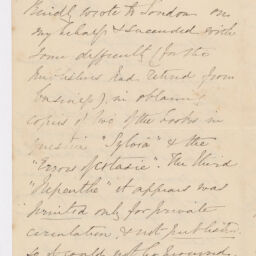 kindly wrote to London on
my behalf & succeeded with
some difficulty (for the
Publishers had retired from
business), in obtaining
copies of two of the books in
question "Sylvia" & the
"Errors of Ecstasie". The third
"Nepenthe" it appears was
printed only for private
circulation, & not published
so it could not be procured